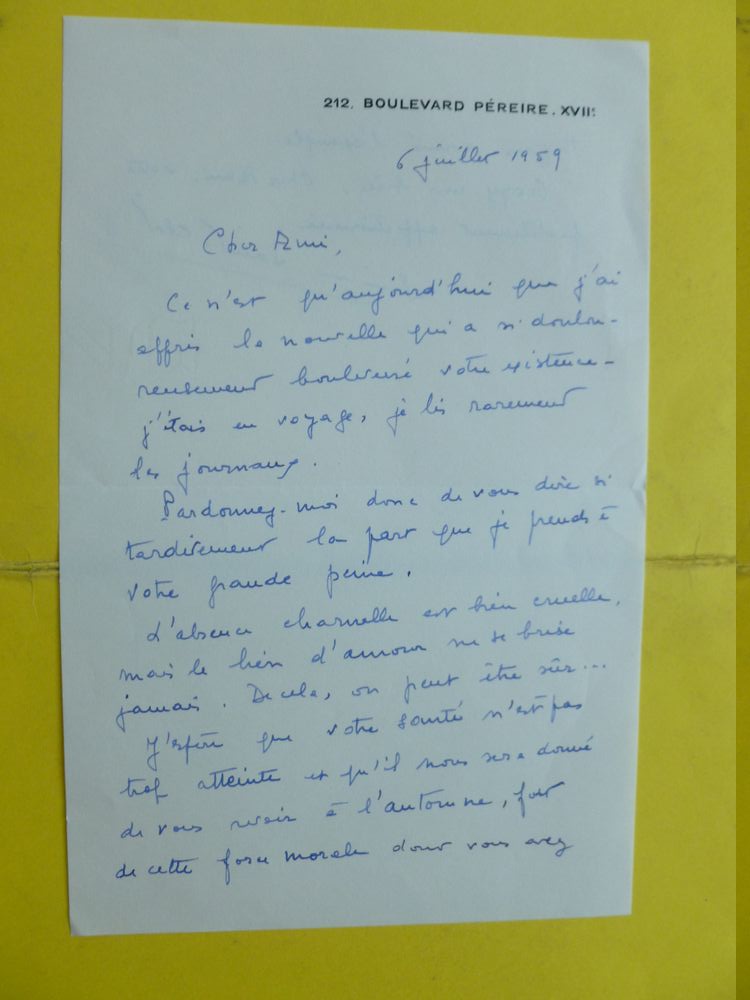 212, BOULEVARD PÉREIRE. XVIIᵉ
6 juillet 1959
Cher Ami,
Ce n'est qu'aujourd'hui que j'ai
appris la nouvelle qui a si doulou-
reusement bouleversé votre existence -
j'étais en voyage, je lis rarement
les journaux.
Pardonnez-moi donc de vous dire si
tardivement la part que je prends à
votre grande peine.
L'absence charnelle est bien cruelle,
mais le lien d'amour ne se brise
jamais. De cela, on peut être sûr...
J'espère que votre santé n'est pas
trop atteinte et qu'il nous sera donné
de vous revoir à l'automne, fort
de cette force morale dont vous avez